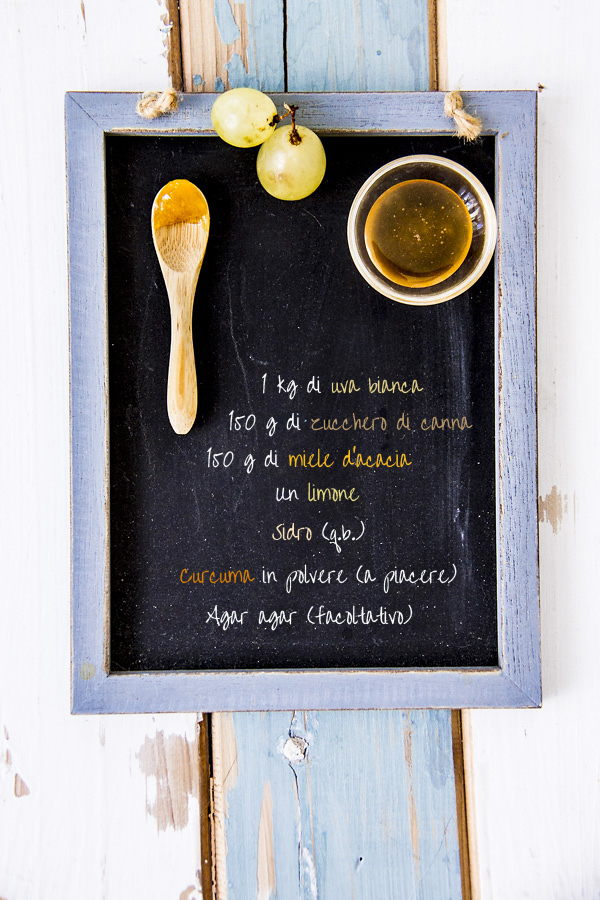 1 kg di uva bianca
150 g di zucchero di canna
150 g di miele d'acacia
un limone
Sidro (q.b.)
Curcuma in polvere (a piacere)
Agar agar (facoltativo)